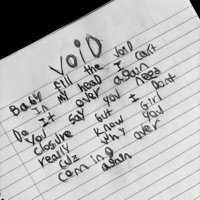 VOID
Baby fill the void
In my head I cant
Do It over again
You say you need
closure but I Dont
really know Girl
cuz why you
coming over
again